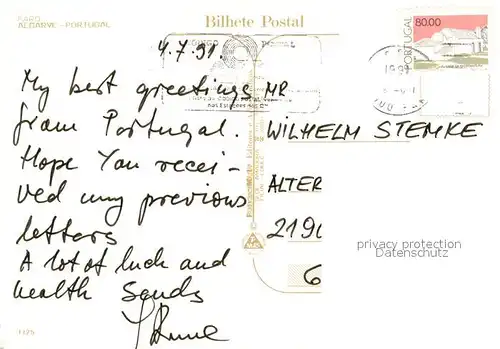 FARO
ALGARVE - PORTUGAL
Bilhete Postal
4.7.91.
PORTUGAL
80.00
My best greetings
from Portugal.
Hope You recei-
ved my previous
letters
A lot of luck and
health Sends
MR
WILHELM STEMKE
ALTER
219
6
privacy protection
Datenschutz